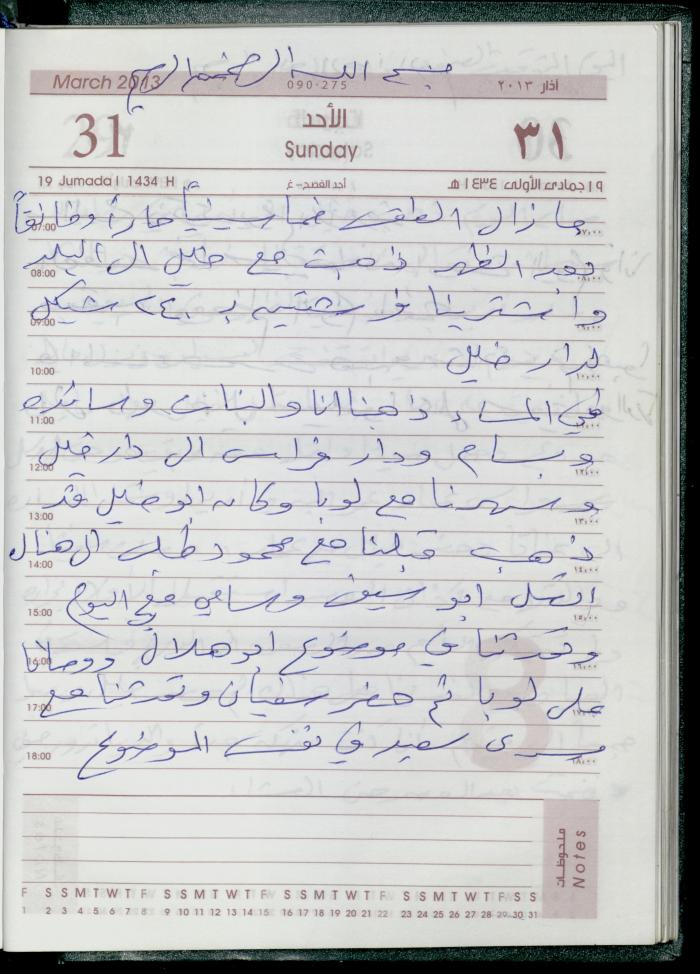 بسم الله الرحمن الرحيم
March 2013
090-275
آذار ٢٠١٣
31
الأحد
Sunday
٣١
19 Jumada I 1434 H
أحد الفصح-غ
١٩ جمادى الأولى ١٤٣٤ هـ
ما زال الطقس خماسينياً حاراً وخانقاً
07:00
٠٧:٠٠
بعد الظهر ذهبت مع خليل الى البلد
08:00
٠٨:٠٠
واشترينا فرشتين بـ ٢٤٠ شيكل
09:00
٠٩:٠٠
لدار خليل
10:00
١٠:٠٠
في المساء ذهبنا انا والبنات وسائده
11:00
١١:٠٠
وبسام ودار فراس الى دار خليل
12:00
١٢:٠٠
وسهرنا مع لوبا وكان ابو خليل قد
13:00
١٣:٠٠
ذهب قبلنا مع محمود طه الى هناك
14:00
١٤:٠٠
اتصل ابو سيف وسامي معي اليوم
15:00
١٥:٠٠
وتحدثنا في موضوع ابو هلال ووصلانا
16:00
١٦:٠٠
على لوبا ثم حضر سفيان وتحدثنا مع
17:00
١٧:٠٠
سعيد في نفس الموضوع
18:00
١٨:٠٠
ملحوظات
Notes
F S S M T W T F S S M T W T F S S M T W T F S S M T W T F S S
1 2 3 4 5 6 7 8 9 10 11 12 13 14 15 16 17 18 19 20 21 22 23 24 25 26 27 28 29 30 31